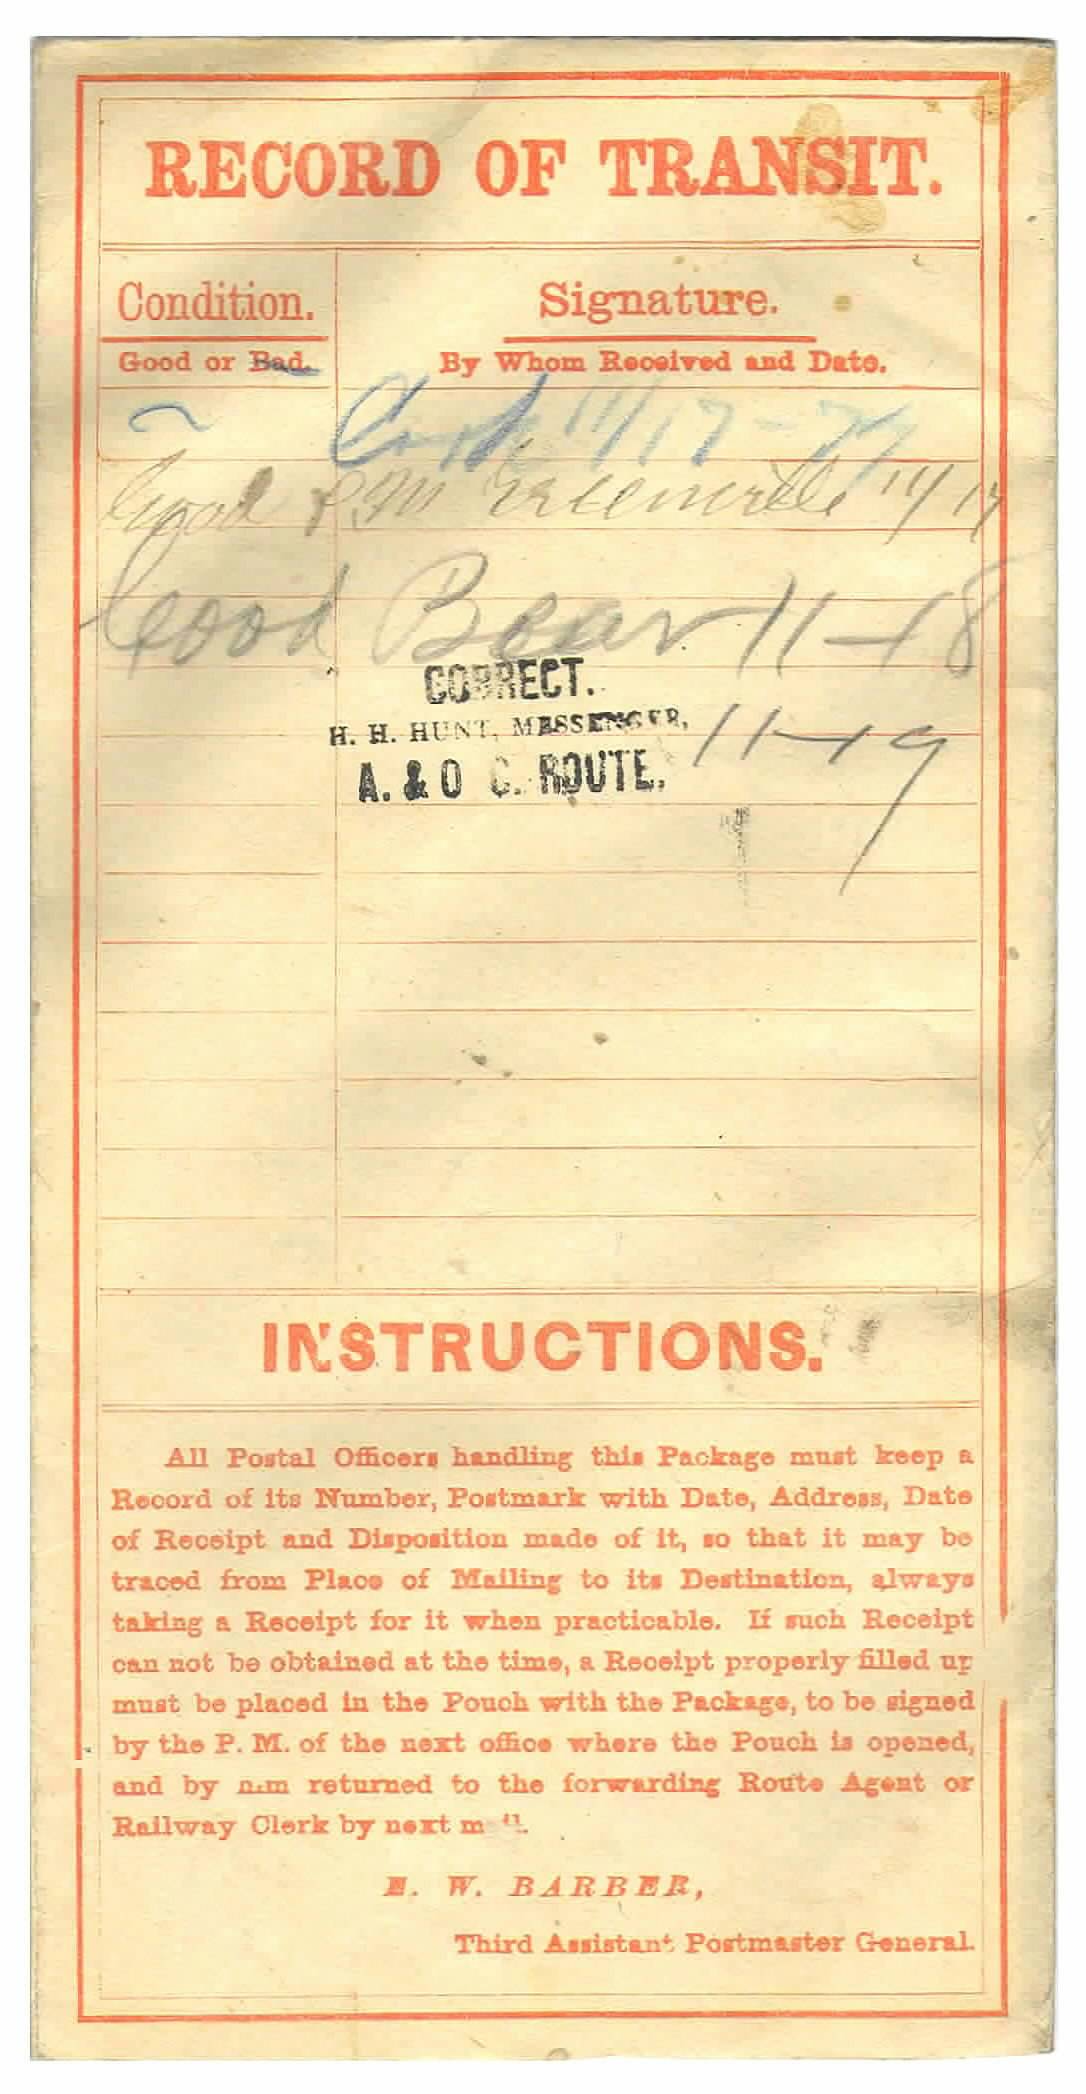 RECORD OF TRANSIT.
Condition. Signature.
Good or Bad. By Whom Received and Date.
Cook 11/17-77
Good P.M Greenville 11/17
Good Bear 11-18
CORRECT.
H. H. HUNT, MESSENGER, 11-19
A. & O C. ROUTE.
INSTRUCTIONS.
All Postal Officers handling this Package must keep a
Record of its Number, Postmark with Date, Address, Date
of Receipt and Disposition made of it, so that it may be
traced from Place of Mailing to its Destination, always
taking a Receipt for it when practicable. If such Receipt
can not be obtained at the time, a Receipt properly filled up
must be placed in the Pouch with the Package, to be signed
by the P. M. of the next office where the Pouch is opened,
and by him returned to the forwarding Route Agent or
Railway Clerk by next mail.
E. W. BARBER,
Third Assistant Postmaster General.